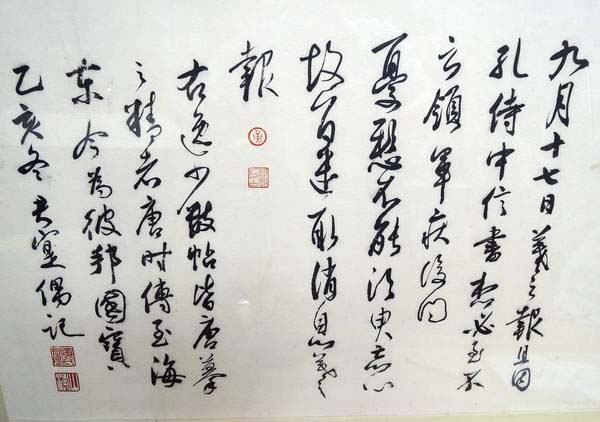 九月十七日羲之報且因
孔侍中信書想必至不
知領軍疾後問
憂懸不能須臾忘心
故旨遣取消息羲之
報
右逸少數帖皆唐摹
之精者唐時傳至海
東今為彼邦國寶
乙亥冬偶記